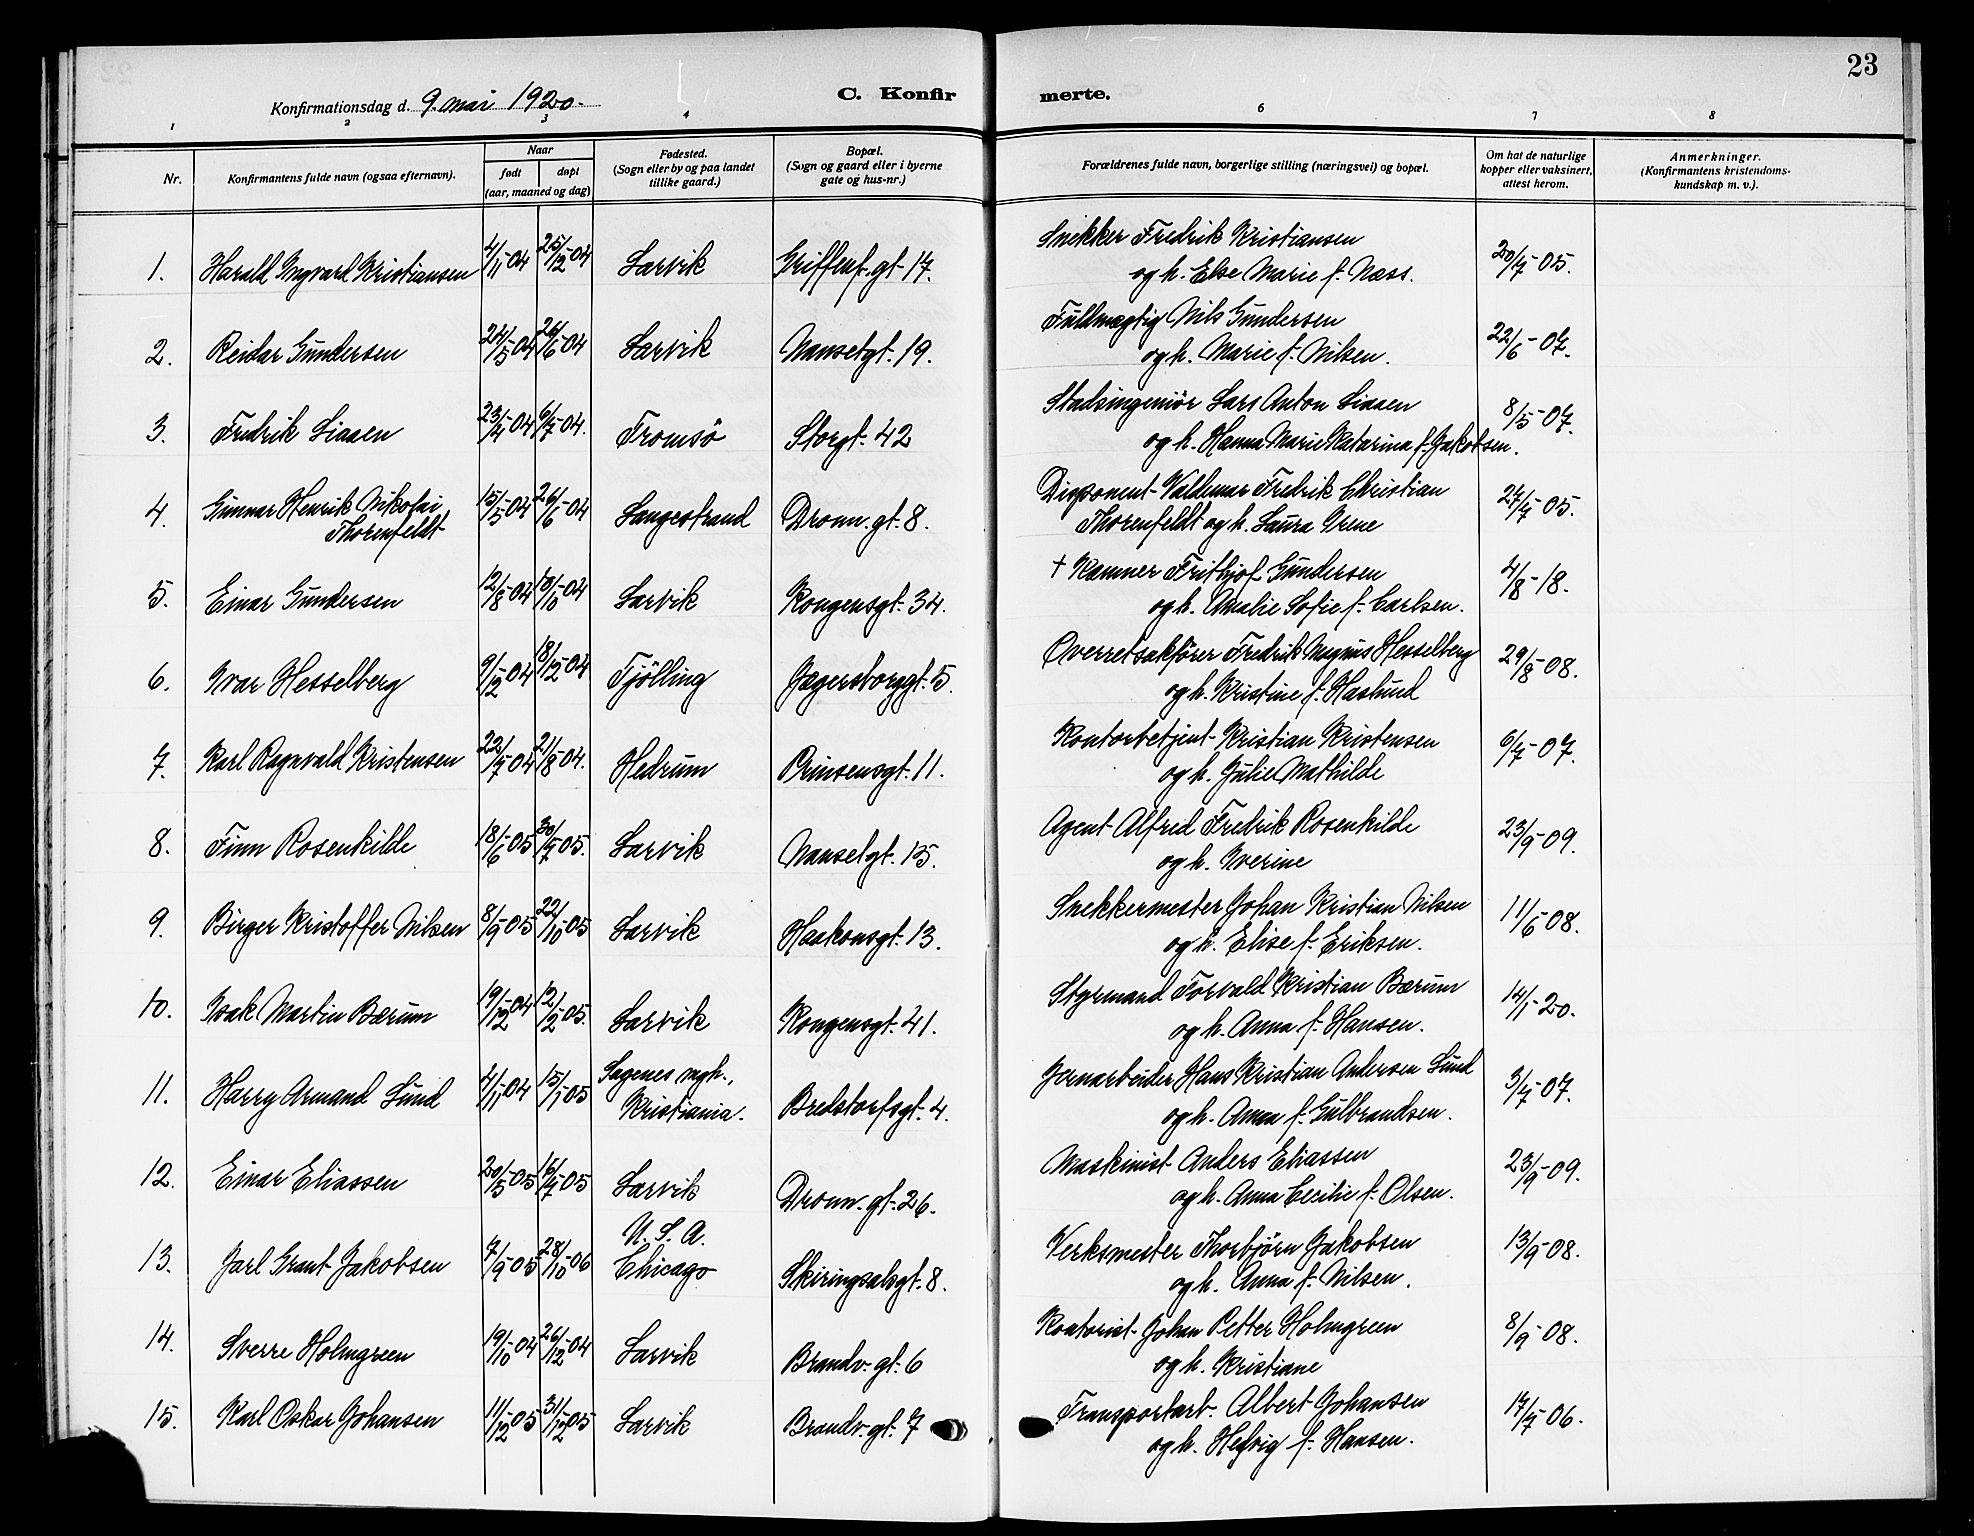 23
Konfirmationsdag d. 9. mai 1920.
C. Konfir
merte.
1 2 3 4 6 7 8
Nr.
Konfirmantens fulde navn (ogsaa efternavn).
Naar
født
døpt
(aar, maaned og dag)
Fødested.
(Sogn eller by og paa landet
tillike gaard.)
Bopæl.
(Sogn og gaard eller i byerne
gate og hus-nr.)
Forældrenes fulde navn, borgerlige stilling (næringsvei) og bopæl.
Om hat de naturlige
kopper eller vaksinert,
attest herom.
Anmerkninger.
(Konfirmantens kristendoms-
kundskap m. v.).
1. Harald Ingvard Kristiansen 4/11-04 25/12-04 Larvik Griffenf. gt. 17.
Snekker Fredrik Kristiansen
og h. Else Marie f. Næss. 20/7-05.
2. Reidar Gundersen 24/5-04 26/6-04 Larvik Nansetgt. 19.
Fuldmægtig Nils Gundersen
og h. Marie f. Nilsen. 22/6-07.
3. Fredrik Liaaen 23/4-04 6/7-04. Tromsö Storgt. 42
Stadsingeniör Lars Anton Liaaen
og h. Hanna Marie Katarina f. Jakobsen. 8/5-07.
4. Gunnar Henrik Nikolai
Thorenfeldt 15/5-04 26/6-04 Langestrand Dronn. gt. 8.
Disponent Valdemar Fredrik Christian
Thorenfeldt og h. Laura Irene 27/7-05.
5. Einar Gundersen 12/8-04 10/10-04 Larvik Kongensgt. 34.
+ Kamner Frithjof Gundersen
og h. Amalie Sofie f. Carlsen. 4/8-18.
6. Ivar Hesselberg 9/12-04 18/12-04 Tjölling Jægersborggt. 5.
Overretsakförer Fredrik Magnus Hesselberg
og h. Kristine f. Haslund 29/8-08.
7. Karl Ragnvald Kristensen 22/7-04 21/8-04. Hedrum Prinsensgt. 11.
Kontorbetjent Kristian Kristensen
og h. Julie Mathilde 6/7-07.
8. Finn Rosenkilde 18/6-05 30/7-05. Larvik Nansetgt. 15.
Agent Alfred Fredrik Rosenkilde
og h. Iverine 23/9-09.
9. Birger Kristoffer Nilsen 8/9-05 22/10-05 Larvik Haakonsgt. 13.
Snekkermester Johan Kristian Nilsen
og h. Elise f. Eriksen. 11/6-08.
10. Isak Martin Bærum 19/12-04 12/2-05. Larvik Kongensgt. 41.
Styrmand Torvald Kristian Bærum
og h. Anna f. Hansen. 14/1-20.
11. Harry Armand Lund 4/11-04 15/1-05 Sagenes mgh.,
Kristiania. Bredstorfsgt. 4.
Jernarbeider Hans Kristian Andersen Lund
og h. Anna f. Gulbrandsen. 3/7-07.
12. Einar Eliassen 20/5-05 16/7-05 Larvik Dronn. gt. 26.
Maskinist Anders Eliassen
og h. Anna Cecilie f. Olsen. 23/9-09.
13. Jarl Grant Jakobsen 7/9-05 28/10-06 U. S. A.
Chicago Skiringsalsgt. 8.
Verksmester Thorbjörn Jakobsen
og h. Anna f. Nilsen. 13/9-08.
14. Sverre Holmgreen 19/10-04 26/12-04 Larvik Brandv. gt. 6
Kontorist Johan Petter Holmgreen
og h. Kristiane 8/9-08.
15. Karl Oskar Johansen 11/12-05 31/12-05 Larvik Brandv. gt. 7
Transportarb. Albert Johansen
og h. Hedvig f. Hansen. 17/7-06.